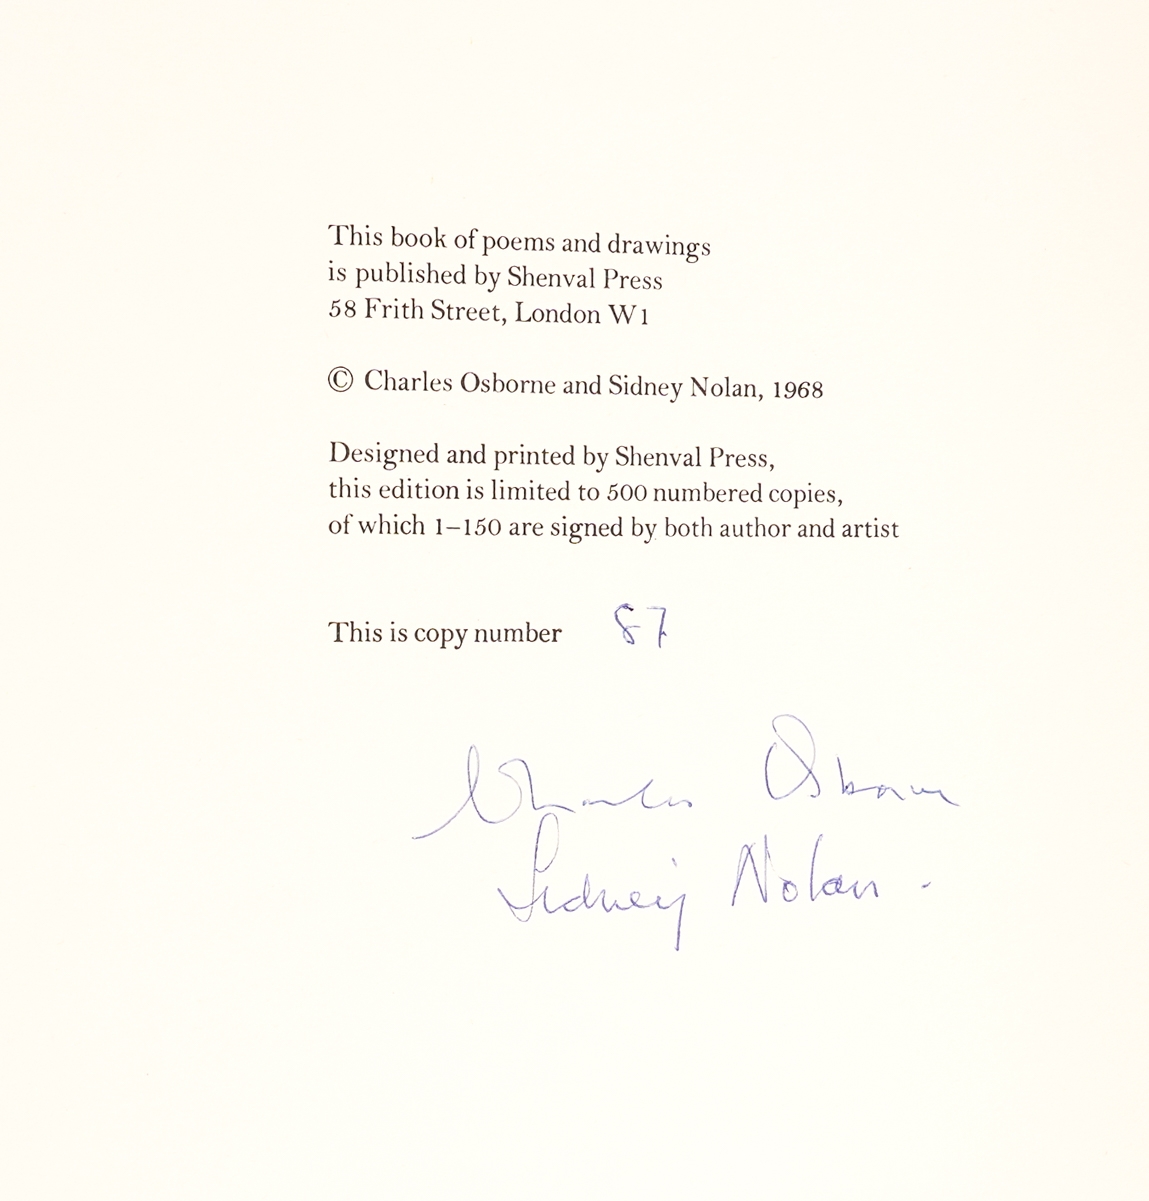 This book of poems and drawings
is published by Shenval Press
58 Frith Street, London W1
© Charles Osborne and Sidney Nolan, 1968
Designed and printed by Shenval Press,
this edition is limited to 500 numbered copies,
of which 1–150 are signed by both author and artist
This is copy number 87
Charles Osborne
Sidney Nolan -